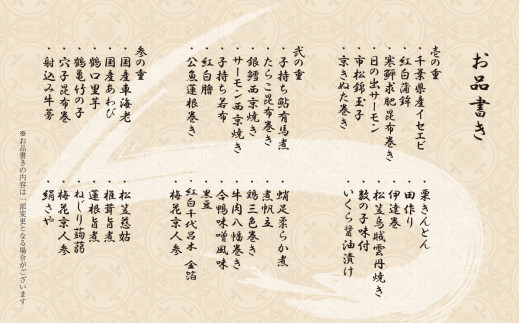 お品書き
壱の重
・千葉県産イセエビ
・紅白蒲錦
・寒鰤求肥昆布巻き
・日の出サーモン
・市松錦玉子
・京きぬた巻き
・栗きんとん
・田作り
・伊達巻
・松笠烏賊雲丹焼き
・鼓の子味付
・いくら醤油漬け
弐の重
・子持ち鮎有馬煮
・たらこ昆布巻き
・銀鱈西京焼き
・サーモン西京焼き
・子持ち若布
・紅白膾
・公魚蓮根巻き
・蛸足柔らか煮
・煮帆立
・鶏三色巻き
・牛肉八幡巻き
・合鴨味噌風味
・黒豆
・紅白千代呂木 金箔
・梅花京人参
参の重
・国産車海老
・国産あわび
・鶴口里芋
・鶴亀竹の子
・穴子昆布巻
・射込み牛蒡
・松笠慈姑
・椎茸旨煮
・蓮根旨煮
・ねじり蒟蒻
・梅花京人参
・絹さや
※お品書きの内容は一部変更となる場合がございます